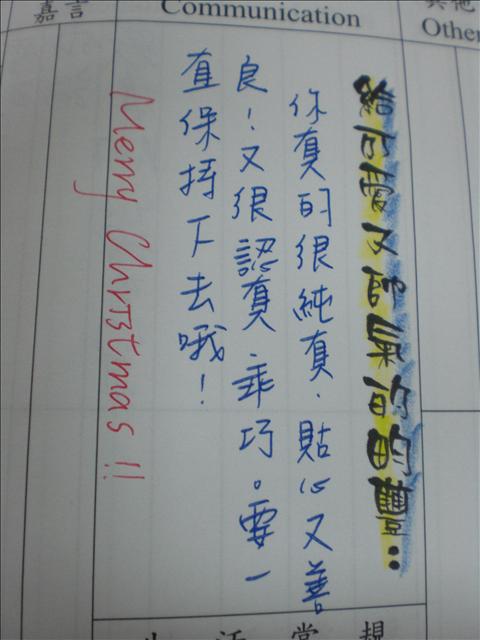 嘉言
Communication
其他
Other
給可愛又帥氣的昀豐:
你真的很純真、貼心又善
良!又很認真乖巧。要一
直保持下去哦!
Merry Christmas !!
生活常規